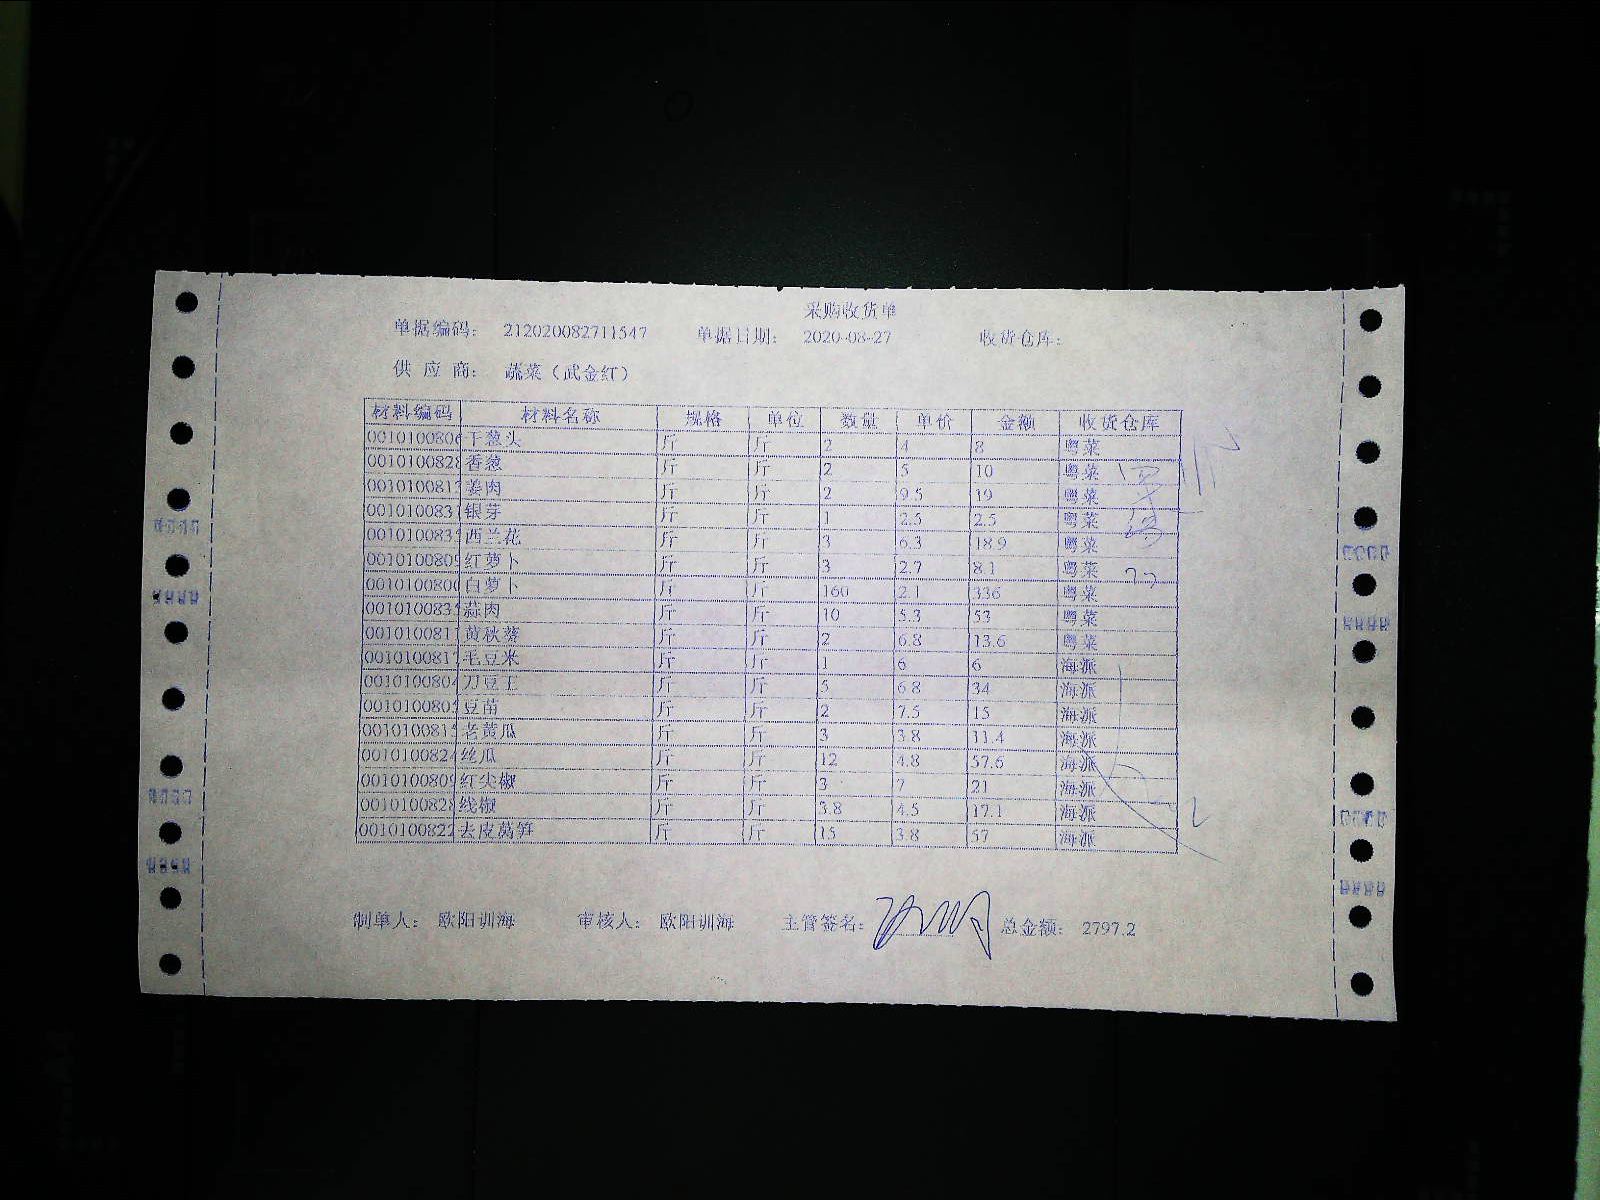 采购收货单
单据编码： 212020082711547 单据日期： 2020-08-27 收货仓库：
供 应 商： 蔬菜（武金红）
材料编码 材料名称 规格 单位 数量 单价 金额 收货仓库
0010100806 干葱头 斤 斤 2 4 8 粤菜
0010100828 香葱 斤 斤 2 5 10 粤菜
001010081 姜肉 斤 斤 2 9.5 19 粤菜
001010083 银芽 斤 斤 1 2.5 2.5 粤菜
001010083 西兰花 斤 斤 3 6.3 18.9 粤菜
0010100809 红萝卜 斤 斤 3 2.7 8.1 粤菜
0010100800 白萝卜 斤 斤 160 2.1 336 粤菜
001010083 蒜肉 斤 斤 10 5.3 53 粤菜
001010081 黄秋葵 斤 斤 2 6.8 13.6 粤菜
001010081 毛豆米 斤 斤 1 6 6 海派
001010080 刀豆王 斤 斤 5 6.8 34 海派
001010080 豆苗 斤 斤 2 7.5 15 海派
001010081 老黄瓜 斤 斤 3 3.8 11.4 海派
001010082 丝瓜 斤 斤 12 4.8 57.6 海派
0010100809 红尖椒 斤 斤 3 7 21 海派
0010100828 线椒 斤 斤 3.8 4.5 17.1 海派
001010082 去皮莴笋 斤 斤 15 3.8 57 海派
制单人： 欧阳训海 审核人： 欧阳训海 主管签名： 总金额： 2797.2